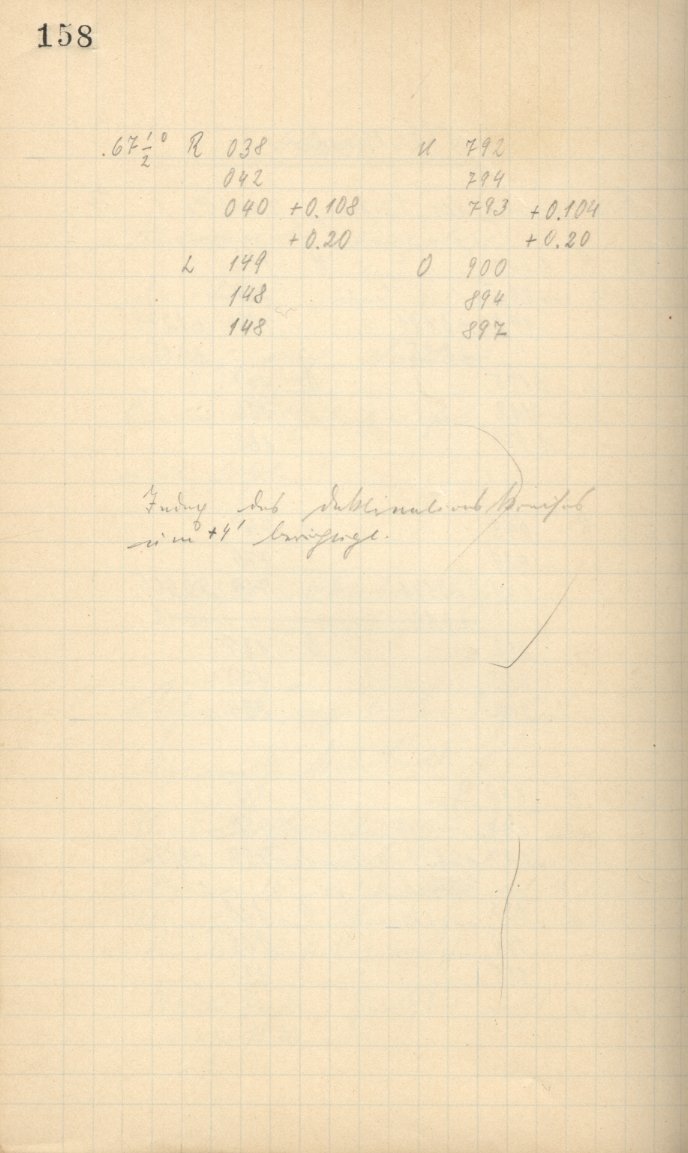 158
.67½° R 038 U 792
042 794
040 +0.108 793 +0.104
+0.20 +0.20
L 149 O 900
148 894
148 897
Index des Deklinationskreises
um +4' berichtigt.